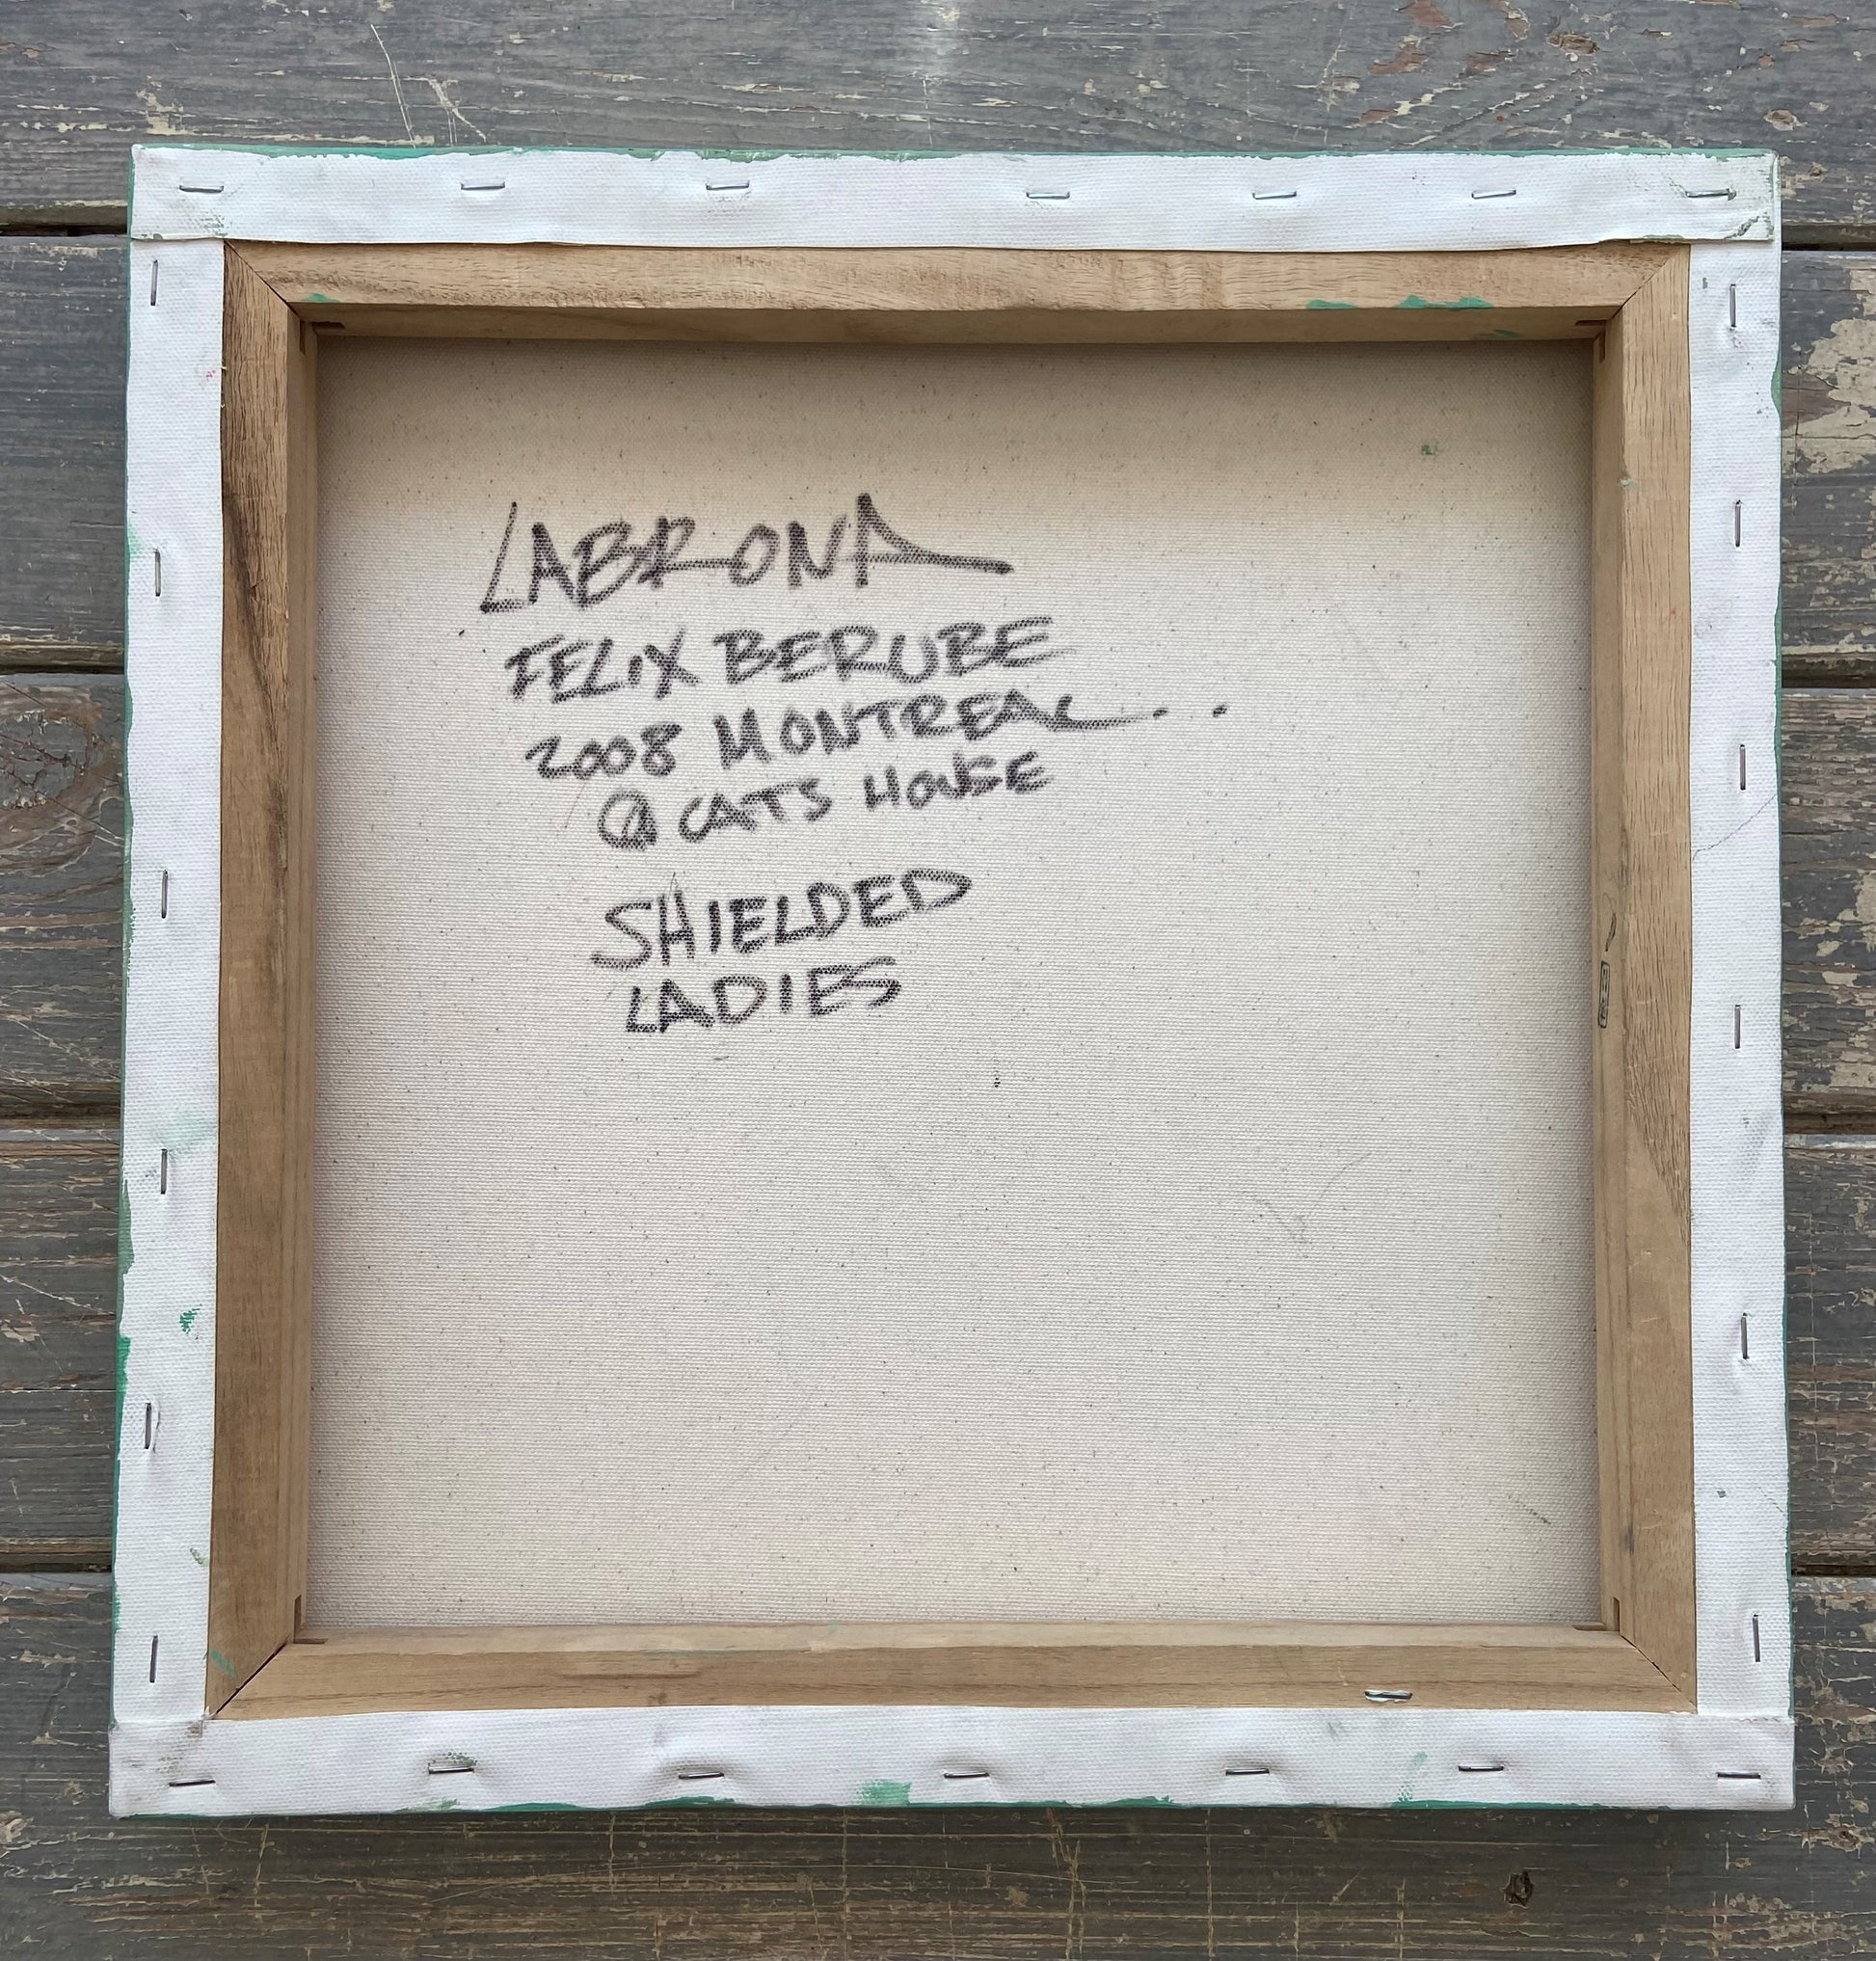 LABRONA
FELIX BERUBE
2008 MONTREAL..
@ CATS HOUSE
SHIELDED
LADIES